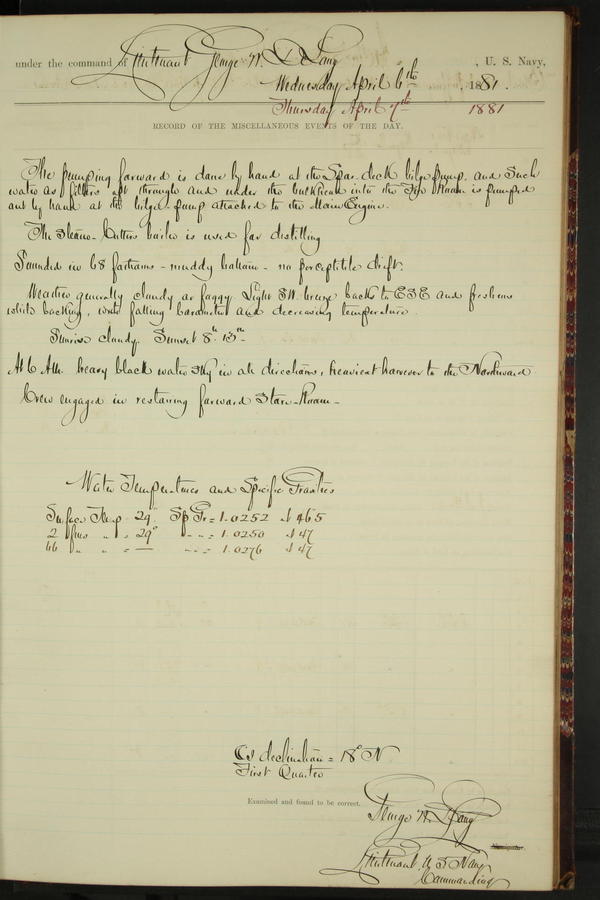 under the command of Lieutenant George W. De Long, U. S. Navy,
Wednesday April 6th, 1881.
Thursday April 7th 1881
RECORD OF THE MISCELLANEOUS EVENTS OF THE DAY.
The pumping forward is done by hand at the Spar-deck bilge pump, and such
water as filters aft through and under the bulkhead into the Fire Room is pumped
out by hand at the bilge-pump attached to the Main Engine.
The Steam-Cutters boiler is used for distilling
Sounded in 68 fathoms - muddy bottom - no perceptible drift.
Weather generally cloudy or foggy. Light SW. breeze backs to ESE and freshens
while backing, with falling barometer and decreasing temperature.
Sunrise cloudy. Sunset 8h 13m
At 6 AM. heavy black water sky in all directions, heaviest however to the Northward
Crew engaged in restowing forward Store-Room -
Water Temperatures and Specific Gravities
Surface Temp 29° Sp Gr = 1.0252 at 46.5
2 fms " " = 29° " " = 1.0250 at 47
66 " " " = — " " = 1.0276 at 47
C's declination = 18° N
First Quarter
Examined and found to be correct.
George W. De Long
Lieutenant U S Navy
Commanding